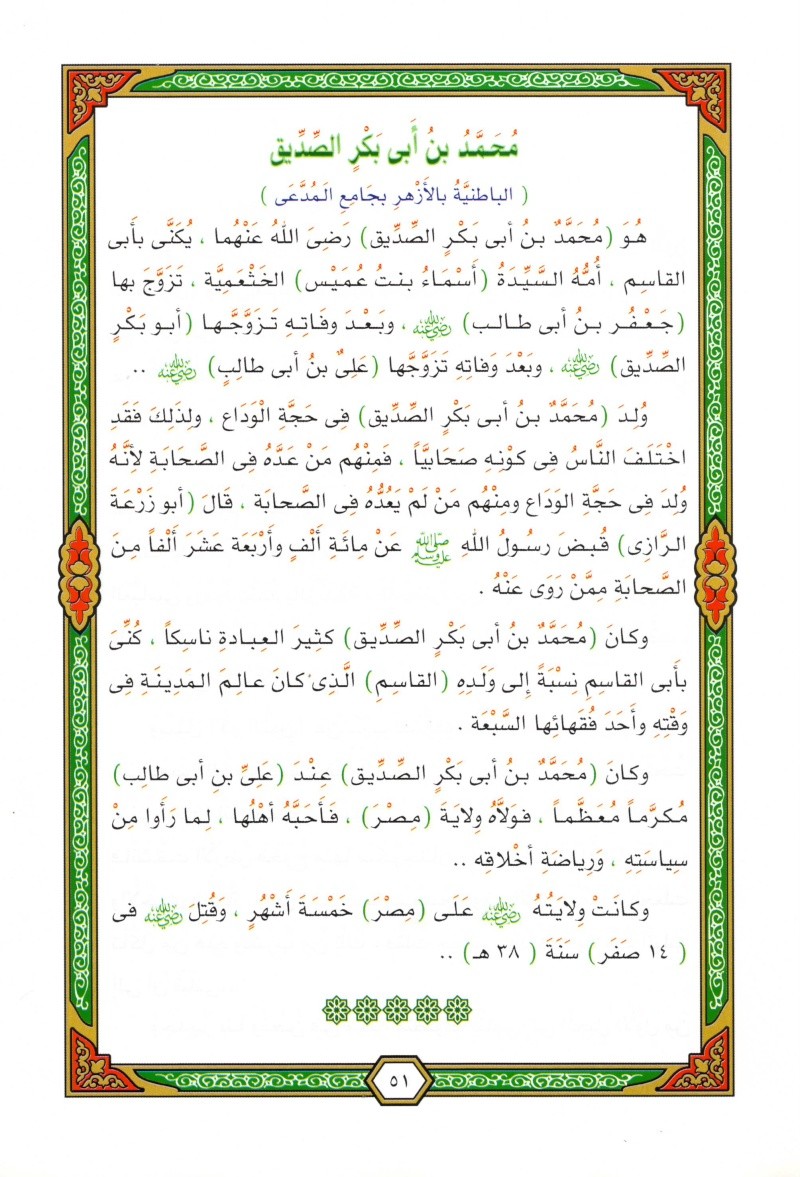 مُحَمَّدُ بنُ أَبى بَكْرٍ الصِّدِّيق
( الباطنيَّةُ بالأَزْهرِ بجامعِ المُدَّعَى )
هُوَ (مُحَمَّدٌ بنُ أبى بَكْرٍ الصِّدِّيق) رَضِىَ اللهُ عَنْهُما ، يُكَنَّى بأبى
القاسِم ، أُمُّهُ السَّيِّدَةُ (أَسْماءُ بنتُ عُمَيْس) الخَثْعَمِيَّة ، تَزوَّجَ بها
(جَعْفَرُ بنُ أبى طالب) رضى الله عنه ، وبَعْدَ وفاتِهِ تَزوَّجَها (أبو بَكْرٍ
الصِّدِّيق) رضى الله عنه ، وبَعْدَ وفاتِهِ تَزوَّجَها (عَلِىُّ بنُ أبى طالِبٍ) رضى الله عنه ..
وُلِدَ (مُحَمَّدٌ بنُ أبى بَكْرٍ الصِّدِّيق) فِى حَجَّةِ الْوَدَاع ، ولِذَلِكَ فَقَدِ
اخْتَلَفَ النَّاسُ فِى كَوْنِهِ صَحَابيَّاً ، فَمِنْهُم مَنْ عَدَّهُ فِى الصَّحابَةِ لأَنَّهُ
وُلِدَ فِى حَجَّةِ الوَدَاعِ ومِنْهُم مَنْ لَمْ يَعُدُّهُ فِى الصَّحابَة ، قَالَ (أبو زَرْعَةَ
الرَّازِى) قُبِضَ رسولُ اللهِ صلى الله عليه وسلم عَنْ مائَةِ أَلْفٍ وأَرْبَعَةَ عَشَرَ أَلْفاً مِنَ
الصَّحابَةِ مِمَّنْ رَوَى عَنْهُ .
وكانَ (مُحَمَّدٌ بنُ أبى بَكْرٍ الصِّدِّيق) كثيرَ العِبادةِ ناسِكاً ، كُنِّىَ
بأَبى القاسِمِ نِسْبَةً إلى وَلَدِهِ (القاسِمِ) الَّذِى كانَ عالِمَ المَدِينَةِ فِى
وَقْتِهِ وأَحَدَ فُقَهائِها السَّبْعَة .
وكانَ (مُحَمَّدٌ بنُ أبى بَكْرٍ الصِّدِّيق) عِنْدَ (عَلِىِّ بنِ أبى طالِب)
مُكرَّماً مُعَظَّماً ، فولاَّهُ وِلايَةَ (مِصْرَ) ، فَأَحَبَّهُ أهْلُها ، لِما رَأَوا مِنْ
سِياسَتِهِ ، وَرِياضَةِ أَخْلاقِه ..
وكانَتْ وِلايَتُهُ رضى الله عنه عَلَى (مِصْرَ) خَمْسَةَ أَشْهُرٍ ، وَقُتِلَ رضى الله عنه فى
( ١٤ صَفَر) سَنَةَ ( ٣٨ هـ) ..
٥١